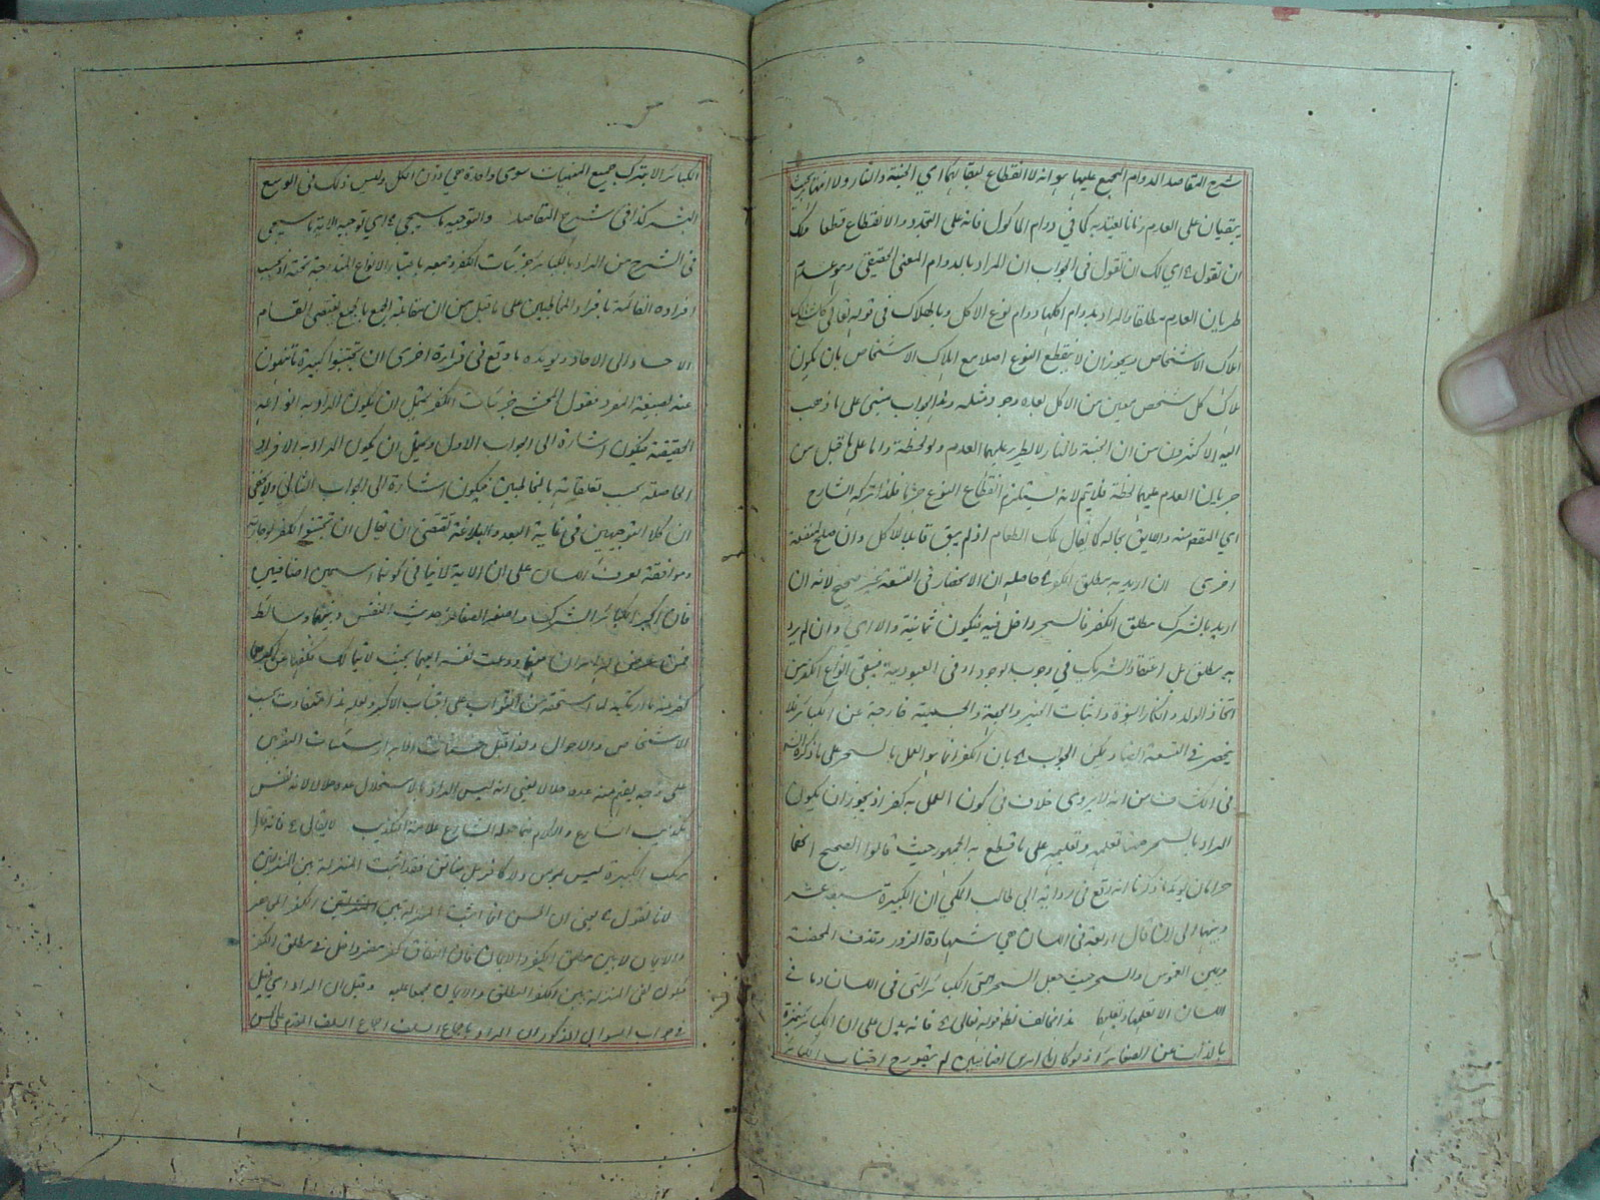 شرح المقاصد الدوام المجمع عليها هو انه لا انقطاع لبقائهما اي الجنة والنار ولا انتهاء بحيث
يبقيان على العدم زمانا يعتد به كما في دوام المأكول فانه على التجدد والانقطاع قطعا ولك
ان تقول اي لك ان تقول فى الجواب ان المراد بالدوام المعنى الحقيقي وهو عدم
طريان العدم مطلقا والمراد بدوام اكلها دوام نوع الاكل وبالهلاك فى قوله تعالى كل شئ هالك
هلاك الاشخاص ويجوز ان لا ينقطع النوع اصلا مع هلاك الاشخاص بان يكون
هلاك كل شخص معين من الاكل بعد وجود مثله وهذا الجواب مبنى على ما ذهب
اليه الاكثرون من ان الجنة والنار لا يطرء عليهما العدم ولو لحظة واما على ما قيل من
جريان العدم عليهما لحظة فلا يتم لانه يستلزم انقطاع النوع جزما فلذا تركه الشارح
اي المقصود منه واللايق بحاله كما يقال هلك الطعام اذ لم يبق قابلا للاكل وان صلح لمنفعة
اخرى ان اريد به مطلق الكفر حاصله ان الانحصار فى التسعة غير صحيح لانه ان
اريد بالشرك مطلق الكفر فالسحر داخل فيه فيكون ثمانية والا اي وان لم يرد
به مطلق بل اعتقاد الشريك في وجوب الوجود او فى العبودية فيبقى انواع الكفر من
اتخاذ الولد وانكار النبوة واثبات الحيز والجهة والجسمية خارجة عن الكبائر فلا
ينحصر فى التسعة ايضا ويمكن الجواب بان الكفر انما هو العمل بالسحر على ما ذكره
فى الكشاف من انه لا يروى خلاف فى كون العمل به كفرا اذ يجوز ان يكون
المراد بالسحر هنا تعلمه وتعليمه على ما قطع به الجمهور حيث قالوا الصحيح انهما
حرامان يؤيد ما ذكرنا انه وقع فى رواية ابي طالب المكي ان الكبيرة سبعة عشر
وبينها الى ان قال اربعة فى اللسان هي شهادة الزور وقذف المحصنة
ويمين الغموس والسحر حيث جعل السحر من الكبائر التي فى اللسان وما فى
اللسان الا تعلمها وتعليمها هذا مخالف لظ قوله تعالى فانه يدل على ان الكبائر متميزة
بالذات عن الصغائر اذ لو كانا امرين اضافيين لم يتصور ح اجتناب الكبائر
الكبائر الا بترك جميع المنهيات سوى واحدة هي دون الكل وليس ذلك فى الوسع
البشر كذا فى شرح المقاصد والتوجيه ما سيجئ اي توجيه الاية ما سيجئ
فى الشرح من المراد بالكبائر جزئيات الكفر وجمعه باعتبار الانواع المندرجة تحته او بحسب
افراده القائمة بافراد المخاطبين على ما قيل من ان مقابلة الجمع بالجمع يقتضي انقسام
الآحاد الى الآحاد ويؤيده ما وقع فى قراءة اخرى ان تجتنبوا كبيرة ما تنهون
عنه بصيغة المفرد فقول المحشى جزئيات الكفر يحتمل ان يكون المراد به انواعه
الحقيقية فيكون اشارة الى الجواب الاول ويحتمل ان يكون المراد به الافراد
الحاصلة بحسب تعلقاته بالمخاطبين فيكون اشارة الى الجواب الثاني ولا يخفى
ان كلا التوجيهين فى غاية البعد والبلاغة تقتضى ان يقال ان تجتنبوا الكفر لوجازته
وموافقته لعرف اللسان على ان الاية لا ينافى كونهما اسمين اضافيين
فان اكبر الكبائر الشرك واصغر الصغائر حديث النفس وبينهما وسائط
فمن عرض له امران منها ودعت نفسه اليهما بحيث لا يتمالك فكفها عن اكبرهما
كفر عنه ما ارتكبه لما استحقه من الثواب على اجتناب الاكبر ولعل هذا يتفاوت بحسب
الاشخاص والاحوال ولذا قيل حسنات الابرار سيئات المقربين
على وجه يفهم منه عده حلالا يعني انه ليس المراد بالاستحلال عده حلالا لانه نفس
تكذيب الشارع والكلام فيما جعله الشارع علامة التكذيب لا يقال فانه قال
مرتكب الكبيرة ليس بمؤمن ولا كافر بل منافق فقد اثبت المنزلة بين المنزلتين
لانا نقول يعنى ان الحسن انما اثبت المنزلة بين الكفر المجاهر
والايمان لا بين مطلق الكفر والايمان فان النفاق كفر مضمر داخل فى مطلق الكفر
فيكون نفى المنزلة بين الكفر المطلق والايمان مجمعا عليه وقيل ان المراد اي قيل
فى جواب السؤال المذكور ان المراد باجماع السلف اجماع السلف المقدم على الحسن